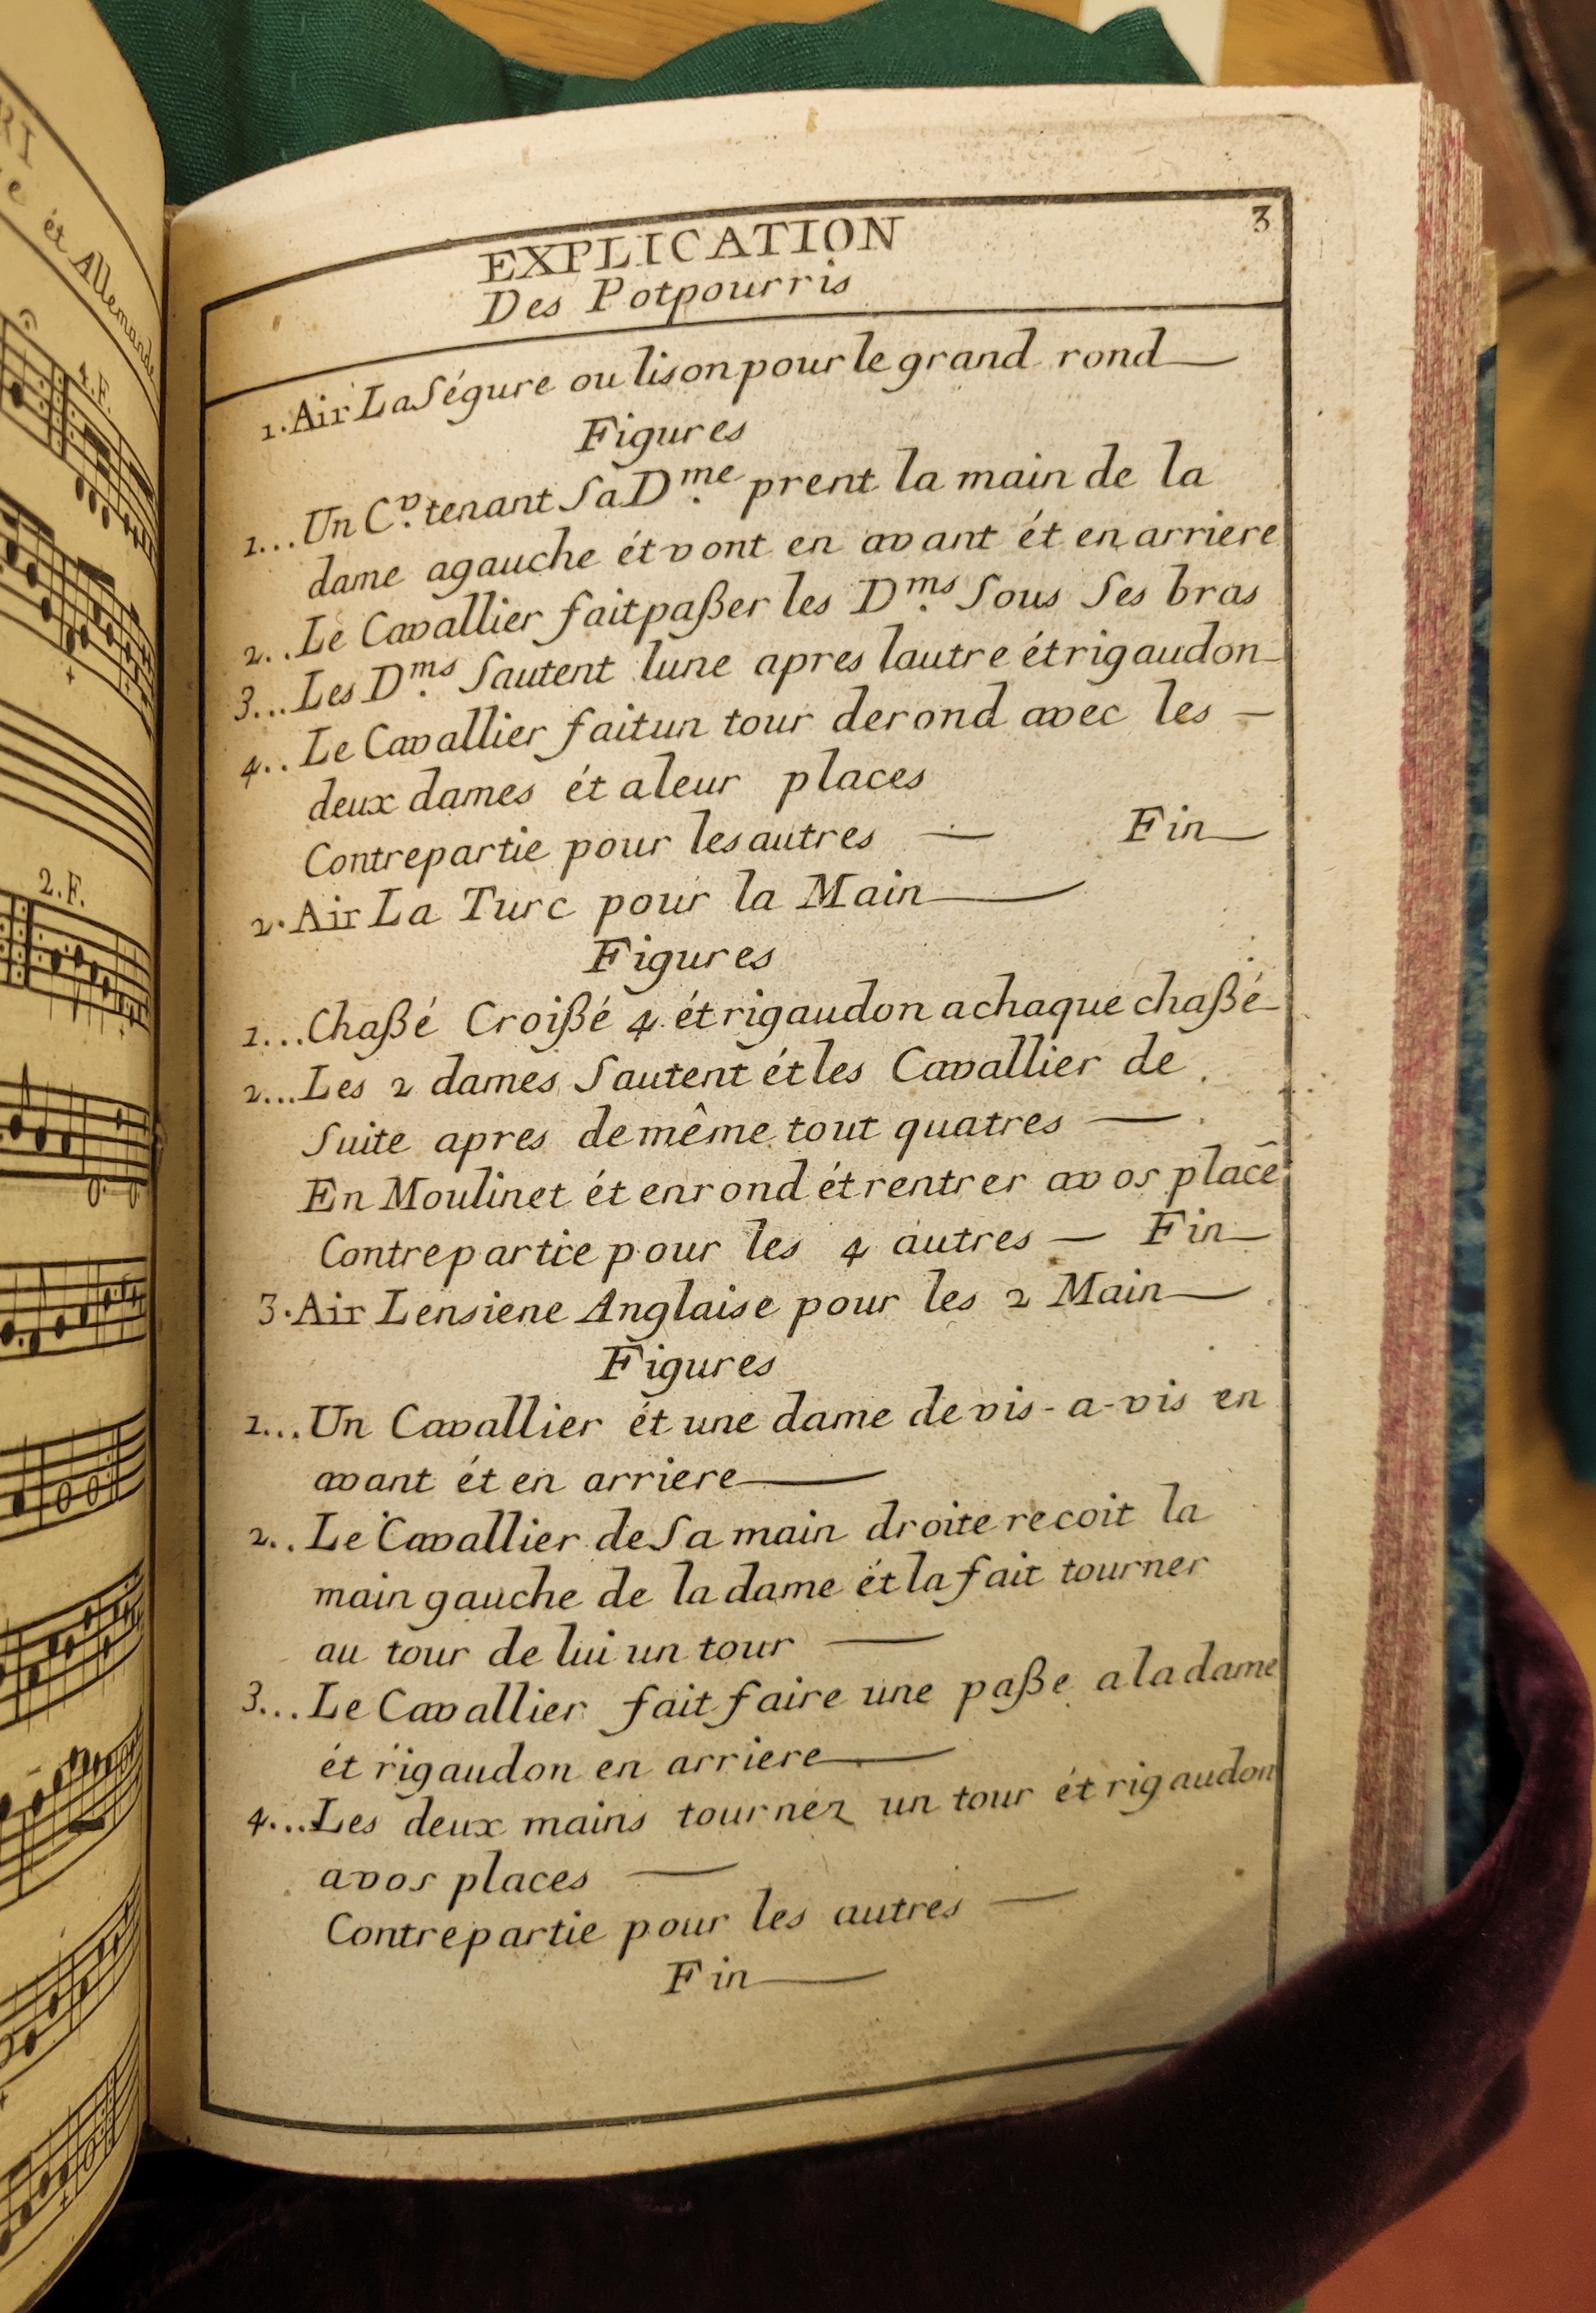 RI
e
ét Allemande
4.F.
2.F.
3
EXPLICATION
Des Potpourris
1. Air La Ségure ou lison pour le grand rond
Figures
1... Un C.v tenant Sa D.me prent la main de la
dame agauche ét vont en avant ét en arriere
2.. Le Cavallier fait paßer les D.ms Sous Ses bras
3... Les D.ms Sautent lune apres lautre ét rigaudon
4.. Le Cavallier fait un tour de rond avec les —
deux dames ét a leur places
Contrepartie pour les autres — Fin
2. Air La Turc pour la Main
Figures
1... Chaßé Croißé 4 ét rigaudon a chaque chaßé
2... Les 2 dames Sautent ét les Cavallier de
Suite apres de même tout quatres —
En Moulinet ét en rond ét rentrer a vos placē
Contrepartie pour les 4 autres — Fin
3. Air Lensiene Anglaise pour les 2 Main
Figures
1... Un Cavallier ét une dame de vis-a-vis en
avant ét en arriere
2.. Le Cavallier de Sa main droite recoit la
main gauche de la dame ét la fait tourner
au tour de lui un tour —
3... Le Cavallier fait faire une paße a la dame
ét rigaudon en arriere
4... Les deux mains tournez un tour ét rigaudon
a vos places —
Contrepartie pour les autres —
Fin